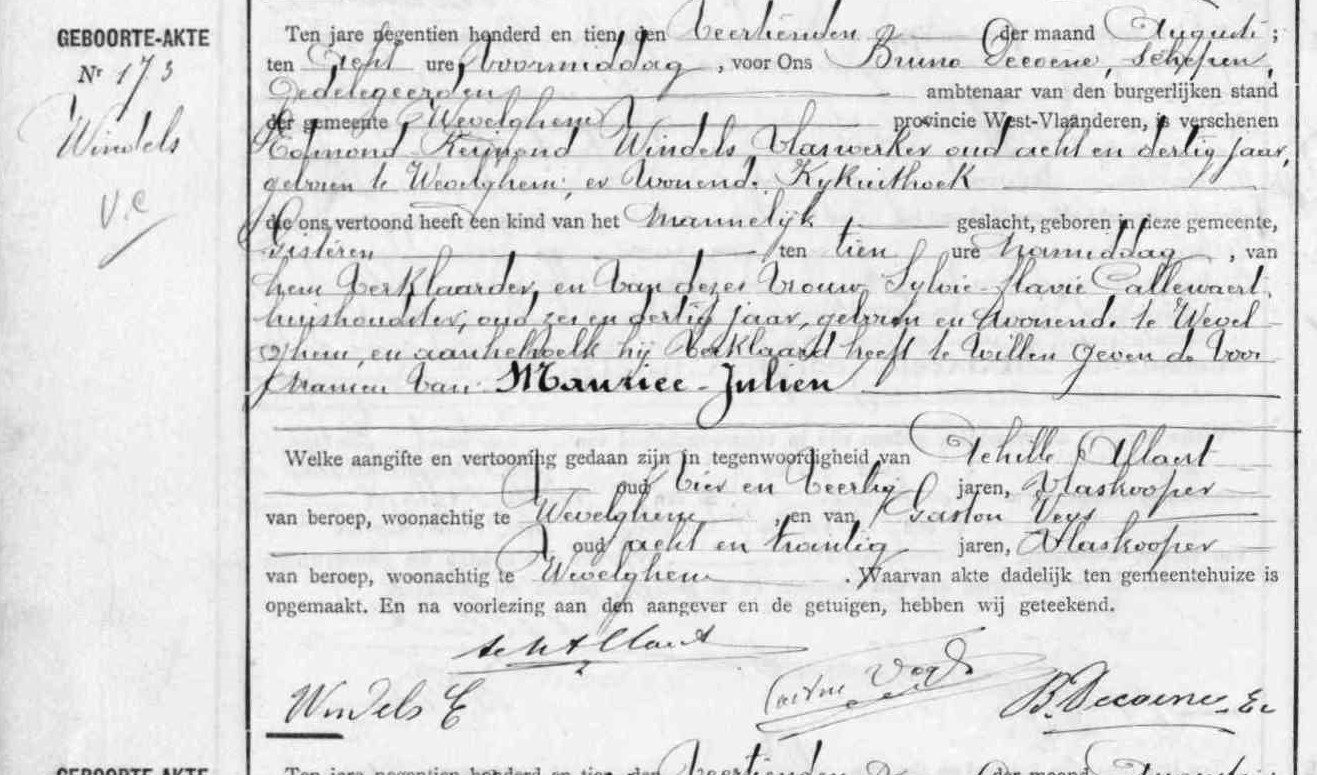 GEBOORTE-AKTE
Nr 173
Windels
V.C
Ten jare negentien honderd en tien, den Veertienden der maand Augusti ;
ten acht ure, Voormiddag , voor Ons Bruno Decoene, Schepen,
Gedelegeerden ambtenaar van den burgerlijken stand
der gemeente Wevelghem provincie West-Vlaanderen, is verschenen
Edmond Reimond Windels, Vlaswerker oud acht en dertig jaar,
geboren te Wevelghem, er Wonende, Kykuithoek
die ons vertoond heeft een kind van het Mannelijk geslacht, geboren in deze gemeente,
gisteren ten tien ure namiddag , van
hem Verklaarder, en Van dezes Vrouw Sylvie-Flavie Callewaert,
huishoudster, oud zes en dertig jaar, geboren en Wonende te Wevel
ghem, en aan hetwelk hij Verklaard heeft te willen geven de Voor
namen Van Maurice-Julien
Welke aangifte en vertooning gedaan zijn in tegenwoordigheid van Achille Allaert
oud vier en Veertig jaren, Vlaskooper
van beroep, woonachtig te Wevelghem , en van Gaston Veys
oud acht en twintig jaren, Vlaskooper
van beroep, woonachtig te Wevelghem . Waarvan akte dadelijk ten gemeentehuize is
opgemaakt. En na voorlezing aan den aangever en de getuigen, hebben wij geteekend.
Ach Allaert
Windels E Gaston Veys B. Decoene, Ec
GEBOORTE-AKTE Ten jare negentien honderd en tien, den Veertienden der maand Augusti